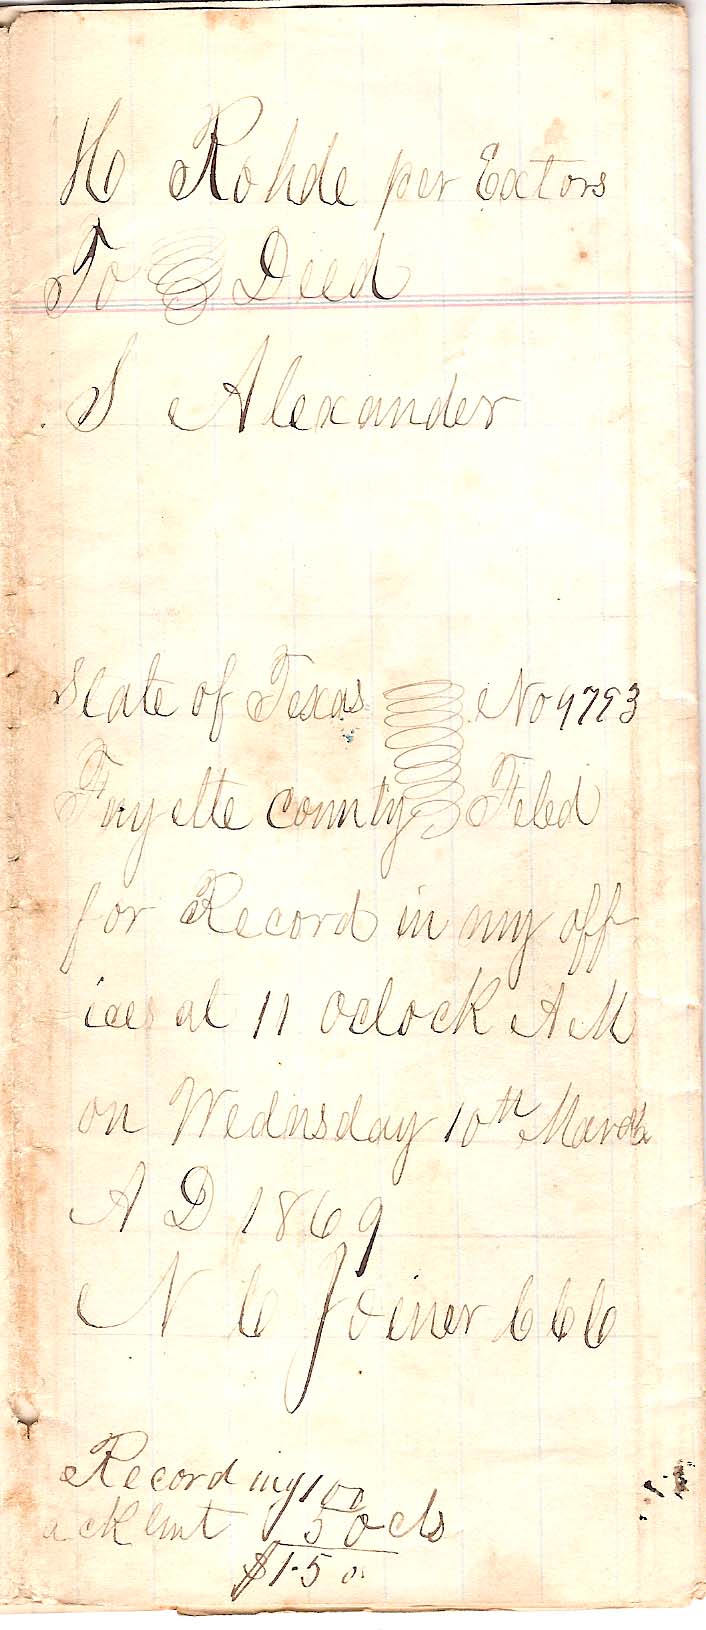 H Rohde per Exctors
To Deed
S Alexander
State of Texas No 9793
Fayette county Filed
for Record in my off
ice at 11 Oclock A M
on Wednsday 10th March
A D 1869
N C Joiner C C C
Recording 1 00
ack lmt 50 cts
$1.50